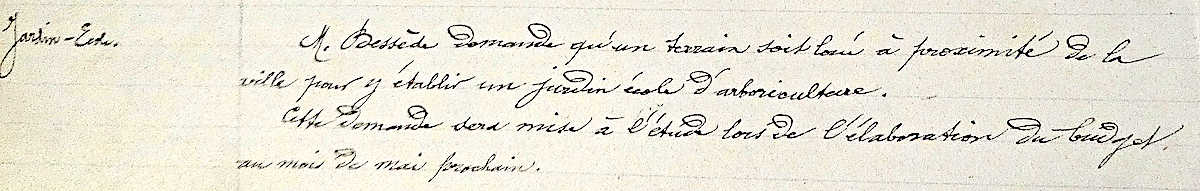 Jardin-Ecole.
M. Bessède demande qu'un terrain soit loué à proximité de la
ville pour y établir un jardin école d'arboriculture.
Cette demande sera mise à l'étude lors de l'élaboration du budget.
au mois de mai prochain.